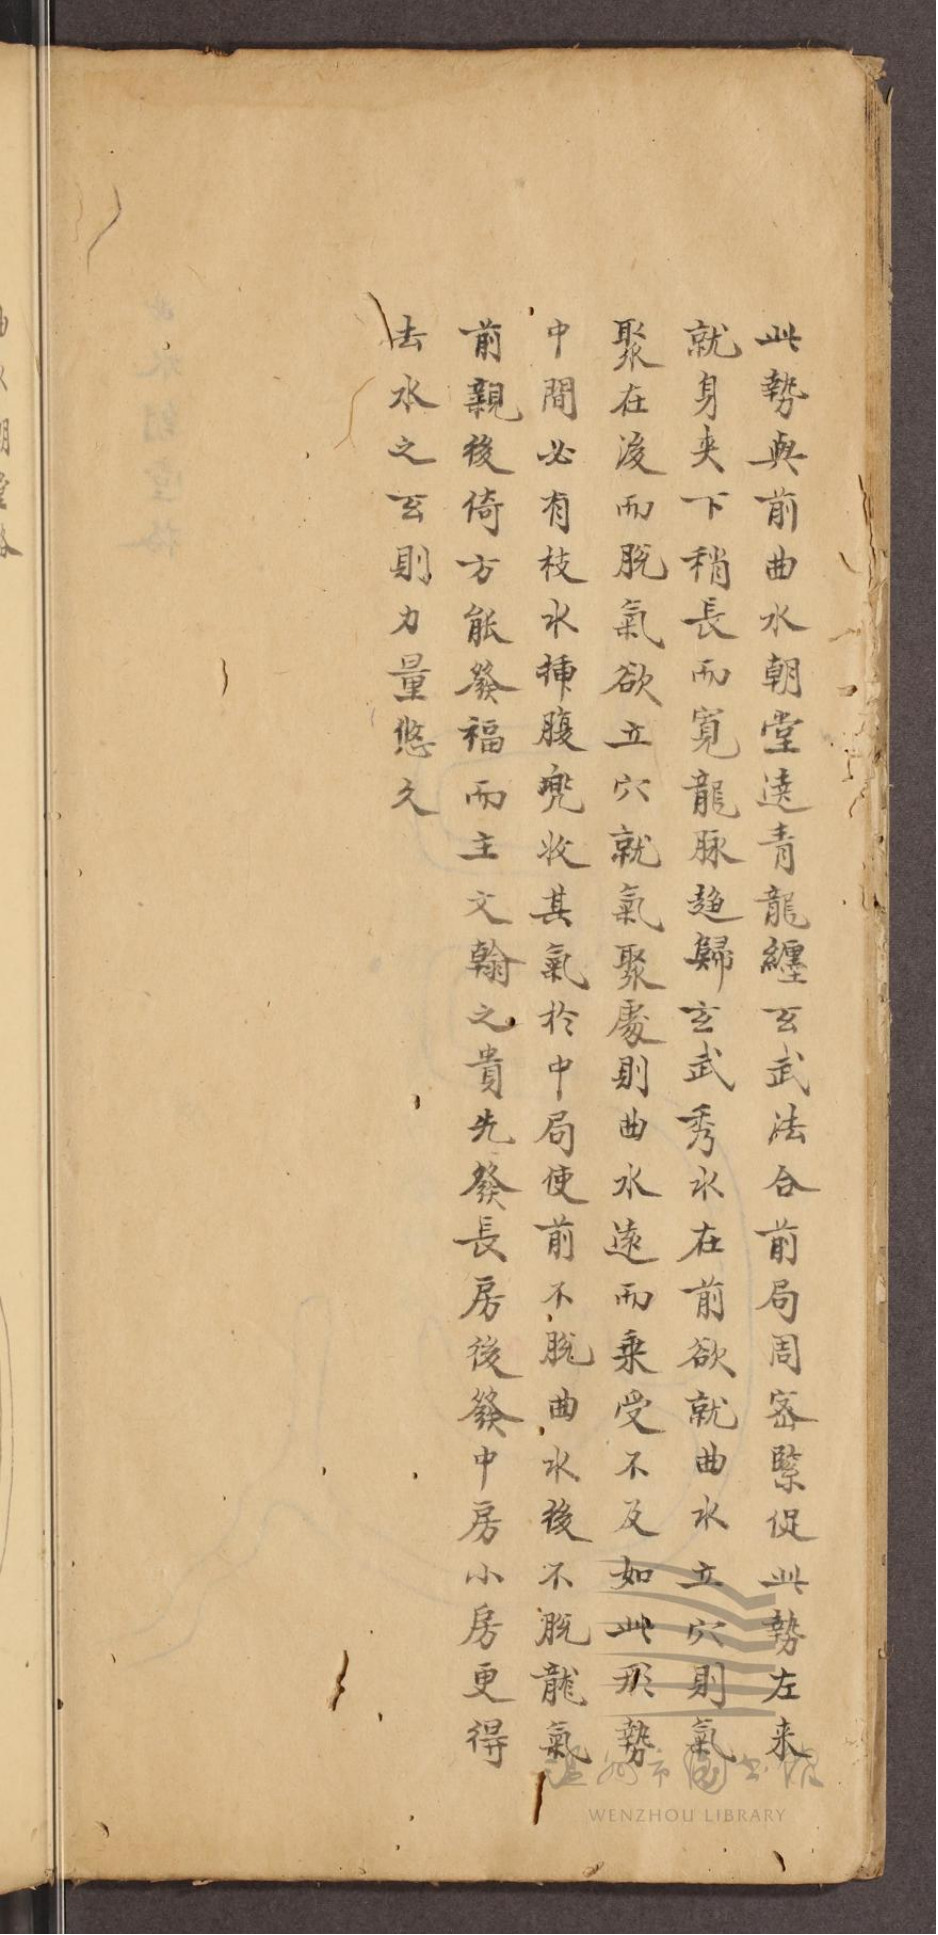 此勢與前曲水朝堂遶青龍纏玄武法合前局周密緊促此勢左来
就身夾下稍長而寬龍脉趋歸玄武秀水在前欲就曲水立穴則氣
聚在後而脫氣欲立穴就氣聚處則曲水遠而乗受不及如此形勢
中間必有枝水揷腹兜收其氣於中局使前不脫曲水後不脫龍氣
前親後倚方能發福而主文翰之貴先發長房後發中房小房更得
去水之玄則力量悠久
温州市圖書館
WENZHOU LIBRARY